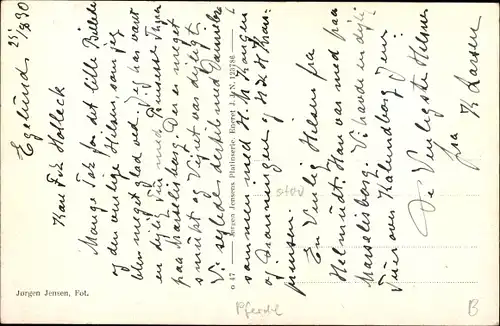 Egelund 25/8 30
Kære Frk Holleck
Mange Tak for det lille Billede
og den venlige Hilsen, som jeg
blev meget glad ved. Jeg har været
en dejlig Tur med Prinsesse Thyra
paa Marselisborg. Der er meget
smukt og Vejret var dejligt.
Vi sejlede dertil med Dannebrog
sammen med H.M. Kongen
og Dronningen og H.K.H. Kron-
prinsen.
En Venlig Hilsen fra
Helmuth. Han var med paa
Marselisborg. Vi havde en dejlig
Tur over Kalundborg
De Venligste Hilsner
fra K Larsen
o 47 Jørgen Jensens Photoserie. Eneret J. J. N. 123786
Jørgen Jensen, Fot.
Pferde
B